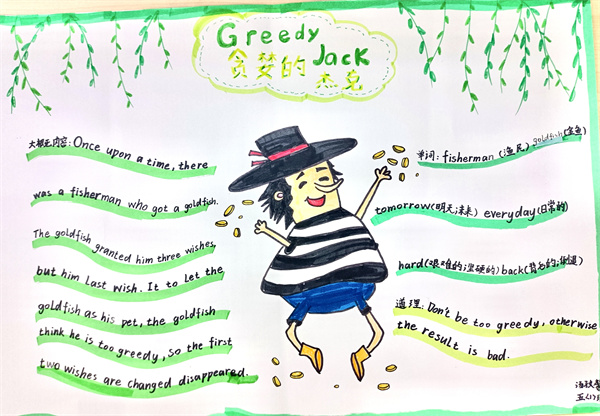 Greedy Jack
贪婪的杰克
大概内容: Once upon a time, there
was a fisherman who got a goldfish.
The goldfish granted him three wishes,
but him last wish. It to let the
goldfish as his pet, the goldfish
think he is too greedy, so the first
two wishes are changed disappeared.
单词: fisherman (渔民) goldfish (金鱼)
tomorrow(明天;未来) everyday(日常的)
hard(艰难的;坚硬的) back(背面的;
道理: Don't be too greedy, otherwise
the result is bad.